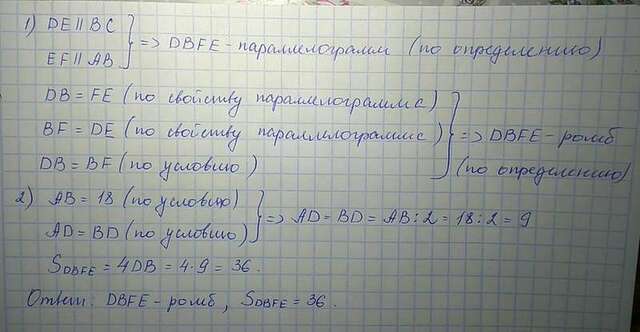 1) DE || BC
EF || AB
=> DBFE - параллелограмм (по определению)
DB = FE (по свойству параллелограмма)
BF = DE (по свойству параллелограмма)
DB = BF (по условию)
=> DBFE - ромб
(по определению)
2) AB = 18 (по условию)
AD = BD (по условию)
=> AD = BD = AB : 2 = 18 : 2 = 9
S DBFE = 4DB = 4·9 = 36.
Ответ: DBFE - ромб, S DBFE = 36.